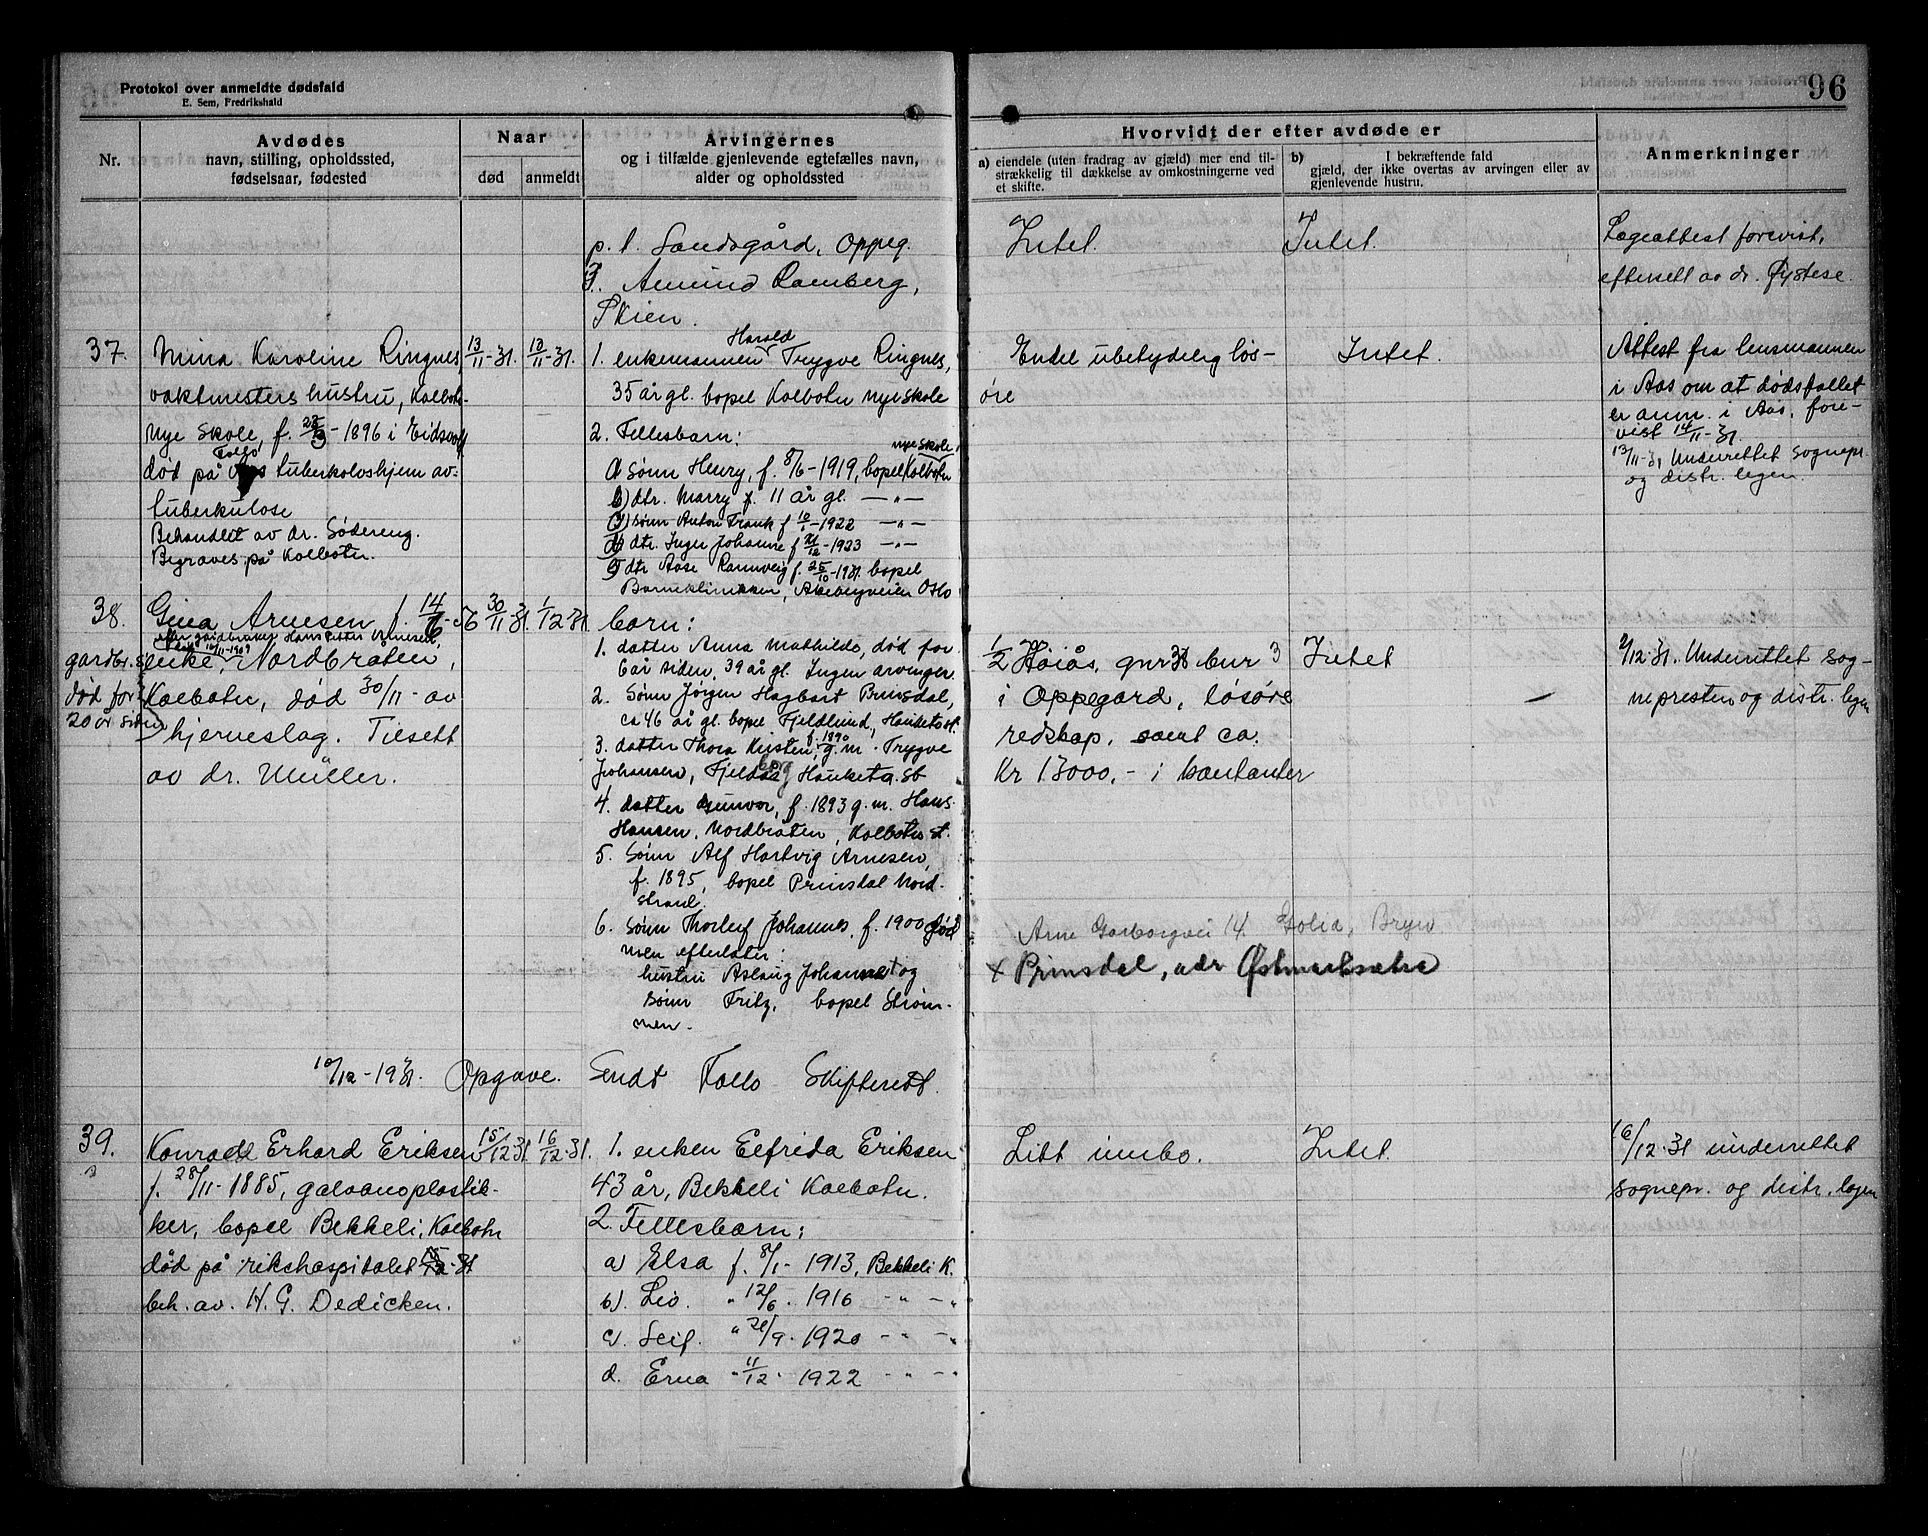 Protokol over anmeldte dødsfald
E. Sem, Fredrikshald
96
Nr.
Avdødes
navn, stilling, opholdssted,
fødselsaar, fødested
Naar
død
anmeldt
Arvingernes
og i tilfælde gjenlevende egtefælles navn,
alder og opholdssted
Hvorvidt der efter avdøde er
a) eiendele (uten fradrag av gjæld) mer end til-
strækkelig til dækkelse av omkostningerne ved
et skifte.
b) I bekræftende fald
gjæld, der ikke overtas av arvingen eller av
gjenlevende hustru.
Anmerkninger
p. t. Sandsgård, Oppeg.
Amund Ramberg,
Skien.
Intet.
Intet.
Lægeattest forevist,
av dr. Øystese.
37.
Mina Karoline Ringnes
vaktmesters hustru, Kolbotn
nye skole, f. - 1896 i Eidsvoll
Follo
død på tuberkuloshjem av
tuberkulose
Behandlet av dr. Sødereng.
Begraves på Kolbotn.
13/11-31.
13/11-31.
Harald
1. enkemannen Trygve Ringnes,
35 år gl. bopel Kolbotn nye skole
2. Fellesbarn:
nye skole
a) sønn Henry, f. 8/6-1919, bopel Kolbotn
b) dtr. Marry f. 11 år gl. —"—
sønn Anton Frank f 10/1-1922 —"—
dtr. Inger Johanne f 21/12-1923 —"—
dtr Aase Rannveig f. 25/10-1931. bopel
Barneklinikken, Akebergveien Oslo
Endel ubetydelig løs-
øre
Intet.
Attest fra lensmannen
i Aas om at dødsfallet
er anm. i Aas, fore-
vist 14/11-31.
13/11-31 Underrettet sognepr.
og distr. legen.
38.
Gina Arnesen, f. 14/6-56
efter gardbruker Hans Petter Arnesen,
16/11-1909
gardbr.s enke, Nordbråten,
død for
20 år siden
Kolbotn, død 30/11 - av
hjerneslag. Tilsett
av dr. Müller.
30/11 31
1/12-31.
barn:
1. datter Anna Mathilde, død for
6 år siden, 39 år gl. Ingen arvinger.
2. Sønn Jørgen Hagbart Prinsdal,
ca 46 år gl. bopel Fjeldlund, Hauketo st.
f. 1890
3. datter Thora Kirsten g. m. Trygve
Johansen, Hauketo. st
4. datter Gunvor, f. 1893 g. m. Hans
Hansen, Nordbråten, Kolbotn st.
5. Sønn Alf Hartvig Arnesen,
f. 1895, bopel Prinsdal Nord-
strand.
6. Sønn Thorleif Johannes, f. 1900 død
men efterlater:
hustru Aslaug Johannes og
sønn Fritz, bopel Strøm-
men.
1/2 Høiås, gnr 38 bnr 3
i Oppegård, løsøre
redskap, samt ca.
Kr 13000.- i kontanter
Intet
-
2/12-31. Underrettet sog-
nepresten og distr. legen
Arne Garborgvei 14 Golia, Bryn
x Prinsdal, adr Østmarksætra
10/12-1931. Opgave. Sendt Follo Skifterett.
39.
Konrad Erhard Eriksen
f. 28/11-1885, galvanoplastik-
ker, bopel Bekkeli, Kolbotn
død på rikshospitalet 15/12-31
beh. av. H. G. Dedicken.
15/12 31.
16/12-31.
1. enken Elfrida Eriksen
43 år, Bekkeli Kolbotn.
2. Fellesbarn:
a) Elsa f. 8/1- 1913, Bekkeli K.
b). Liv. " 12/6. 1916 - " - "
c). Leif. " 21/9. 1920 - " - "
d. Erna " 11/12 " 1922 - " - "
Litt innbo.
Intet.
16/12-31 underrettet
sognepr. og distr. legen